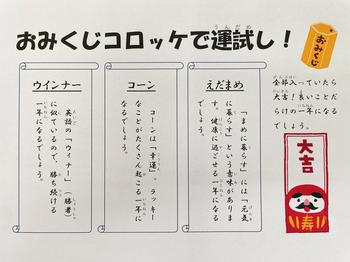 おみくじコロッケで運試し！
うんだめ
おみくじ
全部入っていたら
ぜんぶはい
大吉！良いことだ
だいきち
らけの一年になる
いちねん
でしょう。
えだまめ
「まめに暮らす」には「元気
に暮らす」という意味がありま
す。健康に過ごせる一年になる
でしょう。
コーン
コーンは「幸運」。ラッキー
なことがたくさん起こる一年に
なるでしょう。
ウインナー
英語の「ウィナー」（勝者）
に似ているので、勝ち続ける
一年になるでしょう。
大吉
寿